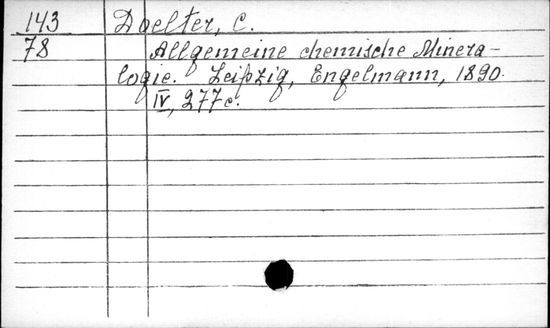 143 Doelter, C.
78 Allgemeine chemische Minera-
logie. Leipzig, Engelmann, 1890.
IV, 277 c.